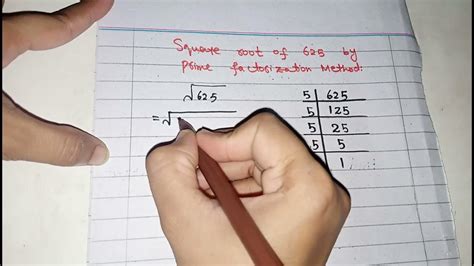 Square root of 625 by
Prime factorization Method:
√625
= √
5 | 625
5 | 125
5 | 25
5 | 5
1